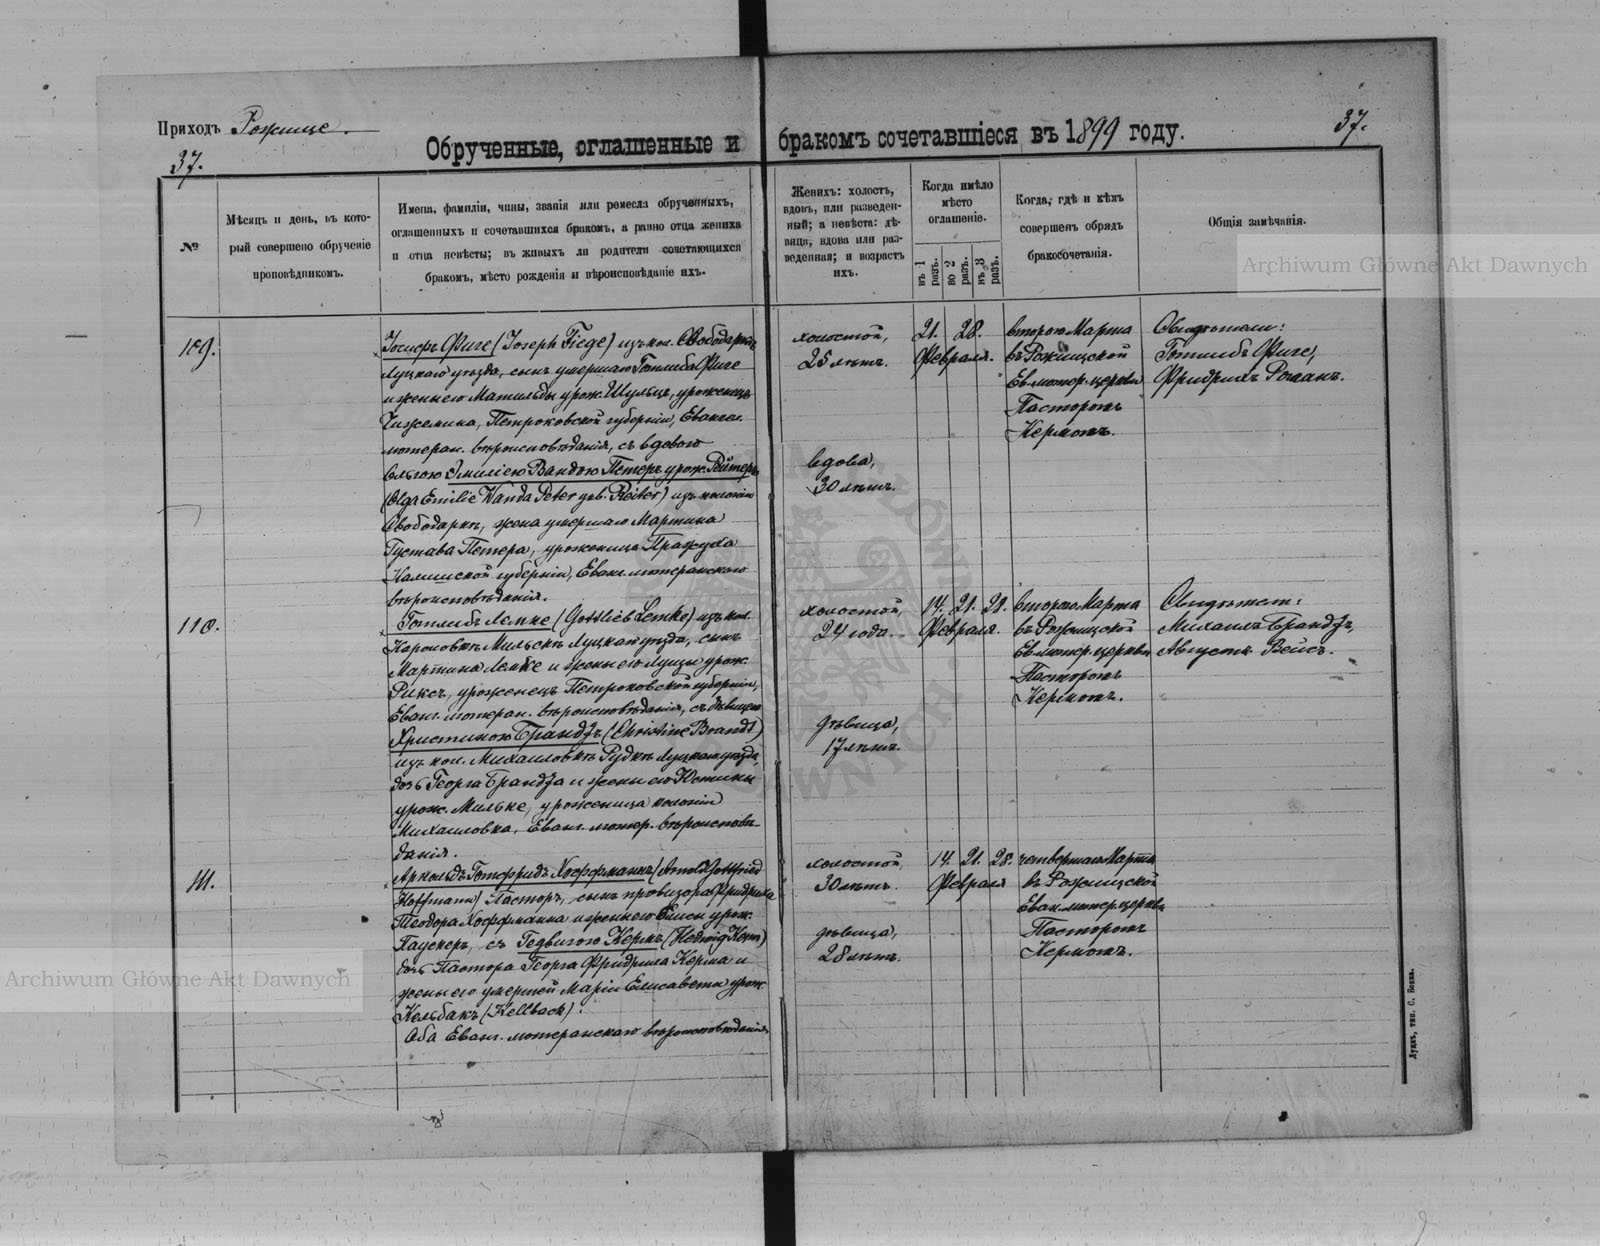 Приходъ Рожище.
37.
37.
Обрученные, оглашенные и бракомъ сочетавшіеся въ 1899 году.
№
Мѣсяцъ и день, въ кото-
рый совершено обрученіе
проповѣдникомъ.
Имена, фамиліи, чины, званія или ремесла обрученныхъ,
оглашенныхъ и сочетавшихся бракомъ, а равно отца жениха
и отца невѣсты; въ живыхъ ли родители сочетающихся
бракомъ, мѣсто рожденія и вѣроисповѣданіе ихъ.
Женихъ: холостъ,
вдовъ, или разведен-
ный; а невѣста: дѣ-
вица, вдова или раз-
веденная; и возрастъ
ихъ.
Когда имѣло
мѣсто
оглашеніе.
въ 1 разъ.
во 2 разъ.
въ 3 разъ.
Когда, гдѣ и кѣмъ
совершенъ обрядъ
бракосочетанія.
Общія замѣчанія.
109.
Іосифъ Фиге (Joseph Fiege) изъ кол. Свободарка
Луцкаго уѣзда, сынъ умершаго Готлиба Фиге
и жены его Матильды урож. Шульцъ, уроженецъ
Петроковской губерніи, Евангел.
лютеран. вѣроисповѣданія, съ вдовою
Ольгою Эмиліею Вандою Петеръ урож. Рейтеръ
(Olga Emilie Wanda Peter geb. Reiter) изъ колоніи
Свободарка, жена умершаго Мартина
Густава Петера, уроженица Пражуха
Калишской губерніи, Еванг. лютеранскаго
вѣроисповѣданія.
холостой,
25 лѣтъ.
вдова,
30 лѣтъ.
21. 28.
Февраля.
второго Марта
въ Рожищской
Ев. лютер. церкви
Пасторомъ
Кермомъ.
Свидѣтели:
Готлибъ Фиге,
Фридрихъ Романъ.
110.
Готлибъ Лемке (Gottlieb Lemke) изъ кол.
Луцкаго уѣзда, сынъ
Мартина Лемке и жены его Луизы урож.
Риксъ, уроженецъ Петроковской губерніи,
Еванг. лютеран. вѣроисповѣданія, съ дѣвицею
Христиною Брандтъ (Christine Brandt)
изъ кол. Михаиловка Рудка Луцкаго уѣзда,
дочь Георга Брандта и жены его Юстины
урож. Мильке, уроженица колоніи
Михаиловка, Еванг. лютер. вѣроисповѣ-
данія.
холостой,
24 года.
дѣвица,
17 лѣтъ.
14. 21. 28.
Февраля.
второго Марта
въ Рожищской
Ев. лютер. церкви
Пасторомъ
Кермомъ.
Свидѣтели:
Михаилъ Брандтъ,
Августъ Вейсъ.
111.
Арнольдъ Готфридъ Хоффманнъ (Arnold Gottfried
Hoffmann) Пасторъ, сынъ провизора Фридриха
Теодора Хоффманна и жены его Елисы урож.
Паукеръ, съ Гедвигою Кермъ (Hedwig Kerm)
дочь Пастора Георга Фридриха Керма и
жены его умершей Маріи Елисаветы урож.
Кельбахъ (Kellbach).
Оба Еванг. лютеранскаго вѣроисповѣданія.
холостой,
30 лѣтъ.
дѣвица,
28 лѣтъ.
14. 21. 28.
Февраля
четвертаго Марта
въ Рожищской
Еван. лютер. церкви
Пасторомъ
Кермомъ.
Луцкъ, тип. С. Бенка.
Archiwum Główne Akt Dawnych
Archiwum Główne Akt Dawnych